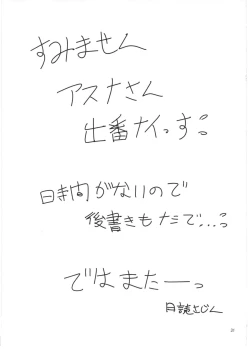 すみません
アスナさん
出番ナイっす
時間がないので
後書きもナシで...
ではまたーっ